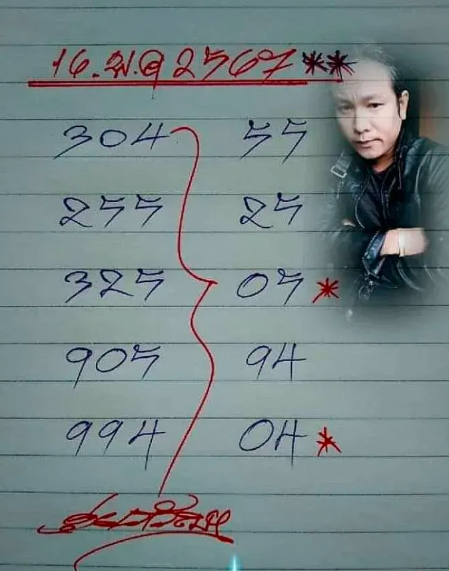 16.พ.ค 2567**
304 55
255 25
325 05*
905 94
994 04*